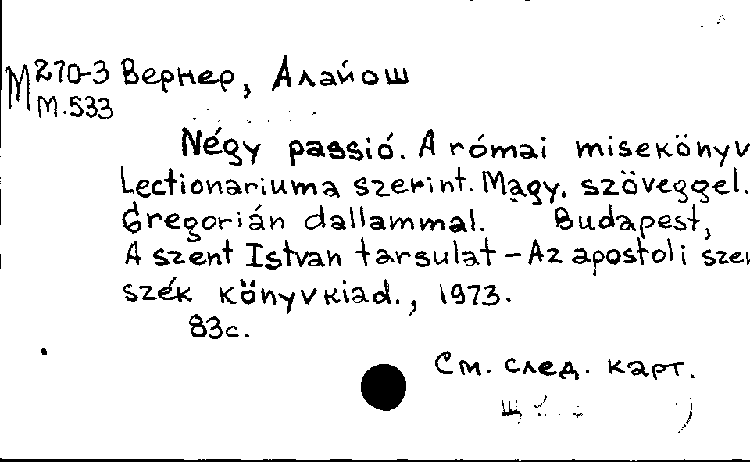 M 270-3 Вернер, Алайош
м.533
Négy passió. A római misekönyv
Lectionariuma szerint. Magy. szöveggel.
Gregorián dallammal. Budapest,
A szent Istvan tarsulat - Az apostoli szen
szék könyvkiad., 1973.
83с.
См. след. карт.